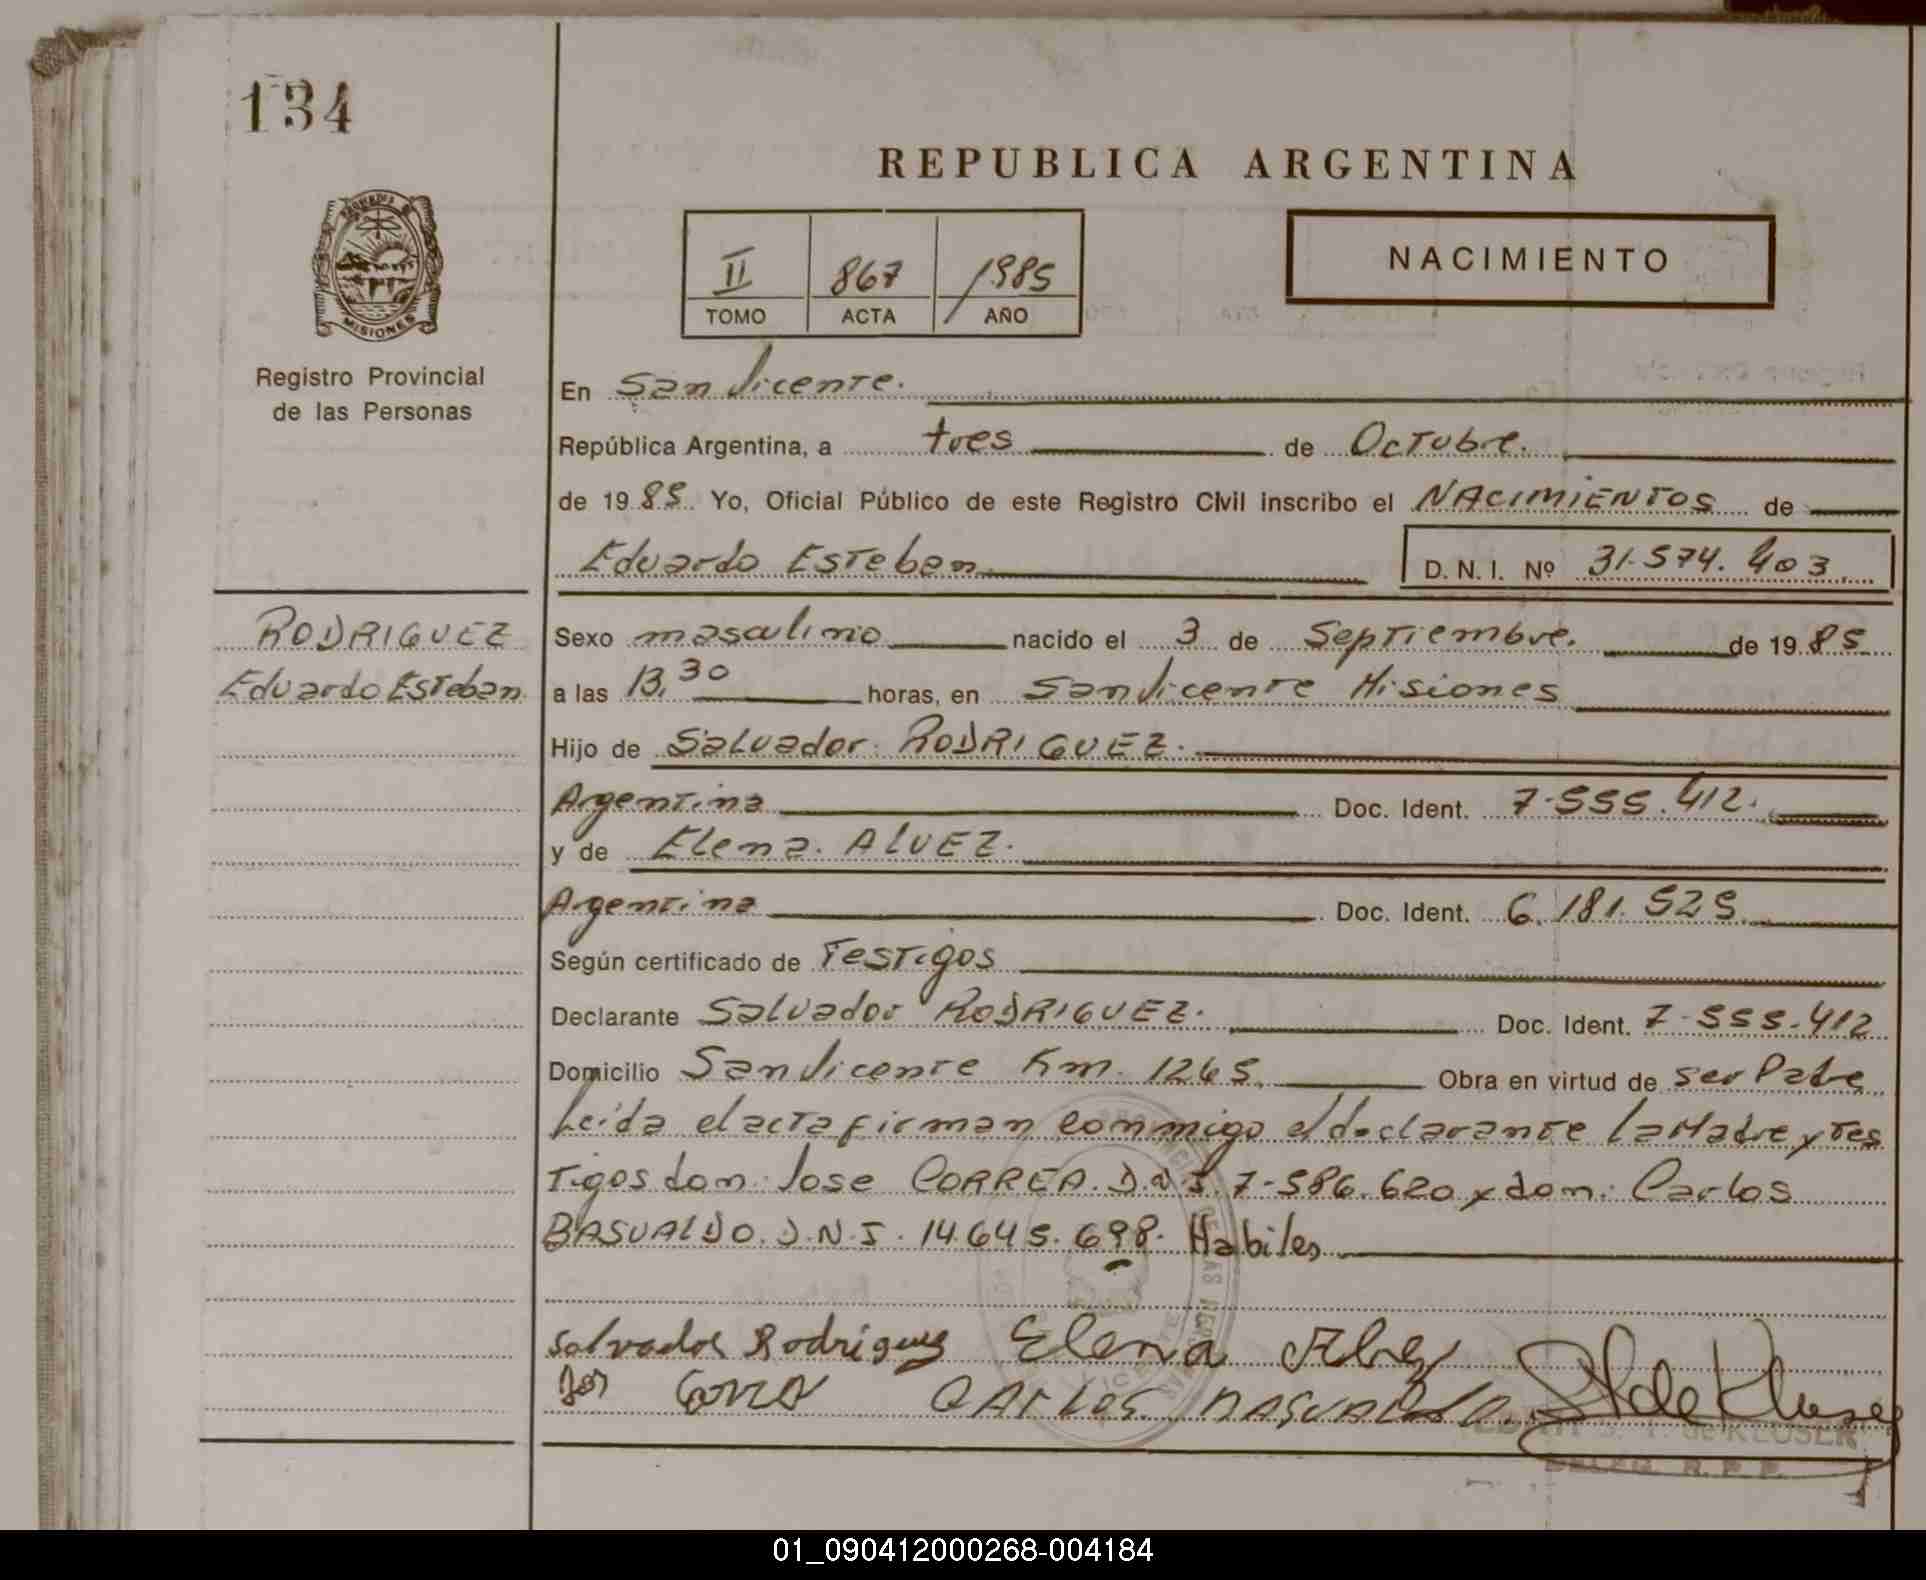 134
REPUBLICA ARGENTINA
II 867 1985
TOMO ACTA AÑO
NACIMIENTO
MISIONES
Registro Provincial
de las Personas
En San Vicente.
República Argentina, a tres de Octubre.
de 1985 Yo, Oficial Público de este Registro Civil inscribo el NACIMIENTOS de
Eduardo Esteban D. N. I. Nº 31.574.403
RODRIGUEZ
Eduardo Esteban
Sexo masculino nacido el 3 de Septiembre. de 1985
a las 13,30 horas, en San Vicente Misiones
Hijo de Salvador RODRIGUEZ.
Argentina Doc. Ident. 7.555.412.
y de Elena. ALVEZ.
Argentina Doc. Ident. 6.181.525
Según certificado de Testigos
Declarante Salvador RODRIGUEZ. Doc. Ident. 7.555.412
Domicilio San Vicente Km. 1265 Obra en virtud de ser Padre
Leida el acta firman conmigo el declarante la Madre y Tes
Tigos don: Jose CORREA. D.N.I. 7.586.620 y don: Carlos
BASUALDO. D.N.I. 14.645.698. Habiles
Salvador Rodriguez Elena
CARLOS BASUALDO
de KLUSER
DELEG. R. P. P.
01_090412000268-004184